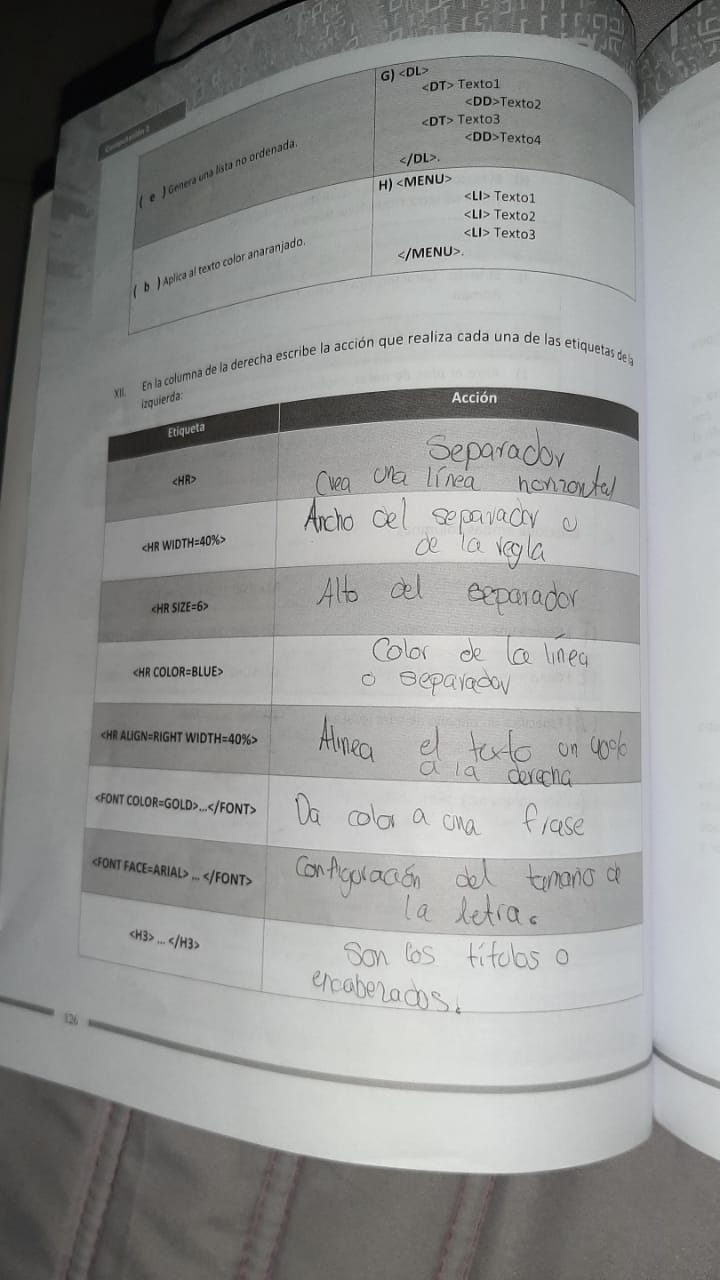 Computación 2
( e ) Genera una lista no ordenada.
G) <DL>
<DT> Texto1
<DD>Texto2
<DT> Texto3
<DD>Texto4
</DL>.
( b ) Aplica al texto color anaranjado.
H) <MENU>
<LI> Texto1
<LI> Texto2
<LI> Texto3
</MENU>.
XII. En la columna de la derecha escribe la acción que realiza cada una de las etiquetas de la
izquierda:
Etiqueta
Acción
<HR>
Separador
Crea una línea horizontal
<HR WIDTH=40%>
Ancho del separador o
de la regla
<HR SIZE=6>
Alto del separador
<HR COLOR=BLUE>
Color de la línea
o separador
<HR ALIGN=RIGHT WIDTH=40%>
Alinea el texto un 40%
a la derecha
<FONT COLOR=GOLD>...</FONT>
Da color a una frase
<FONT FACE=ARIAL> ... </FONT>
Configuración del tamaño de
la letra.
<H3> ... </H3>
Son los títulos o
encabezados.
126